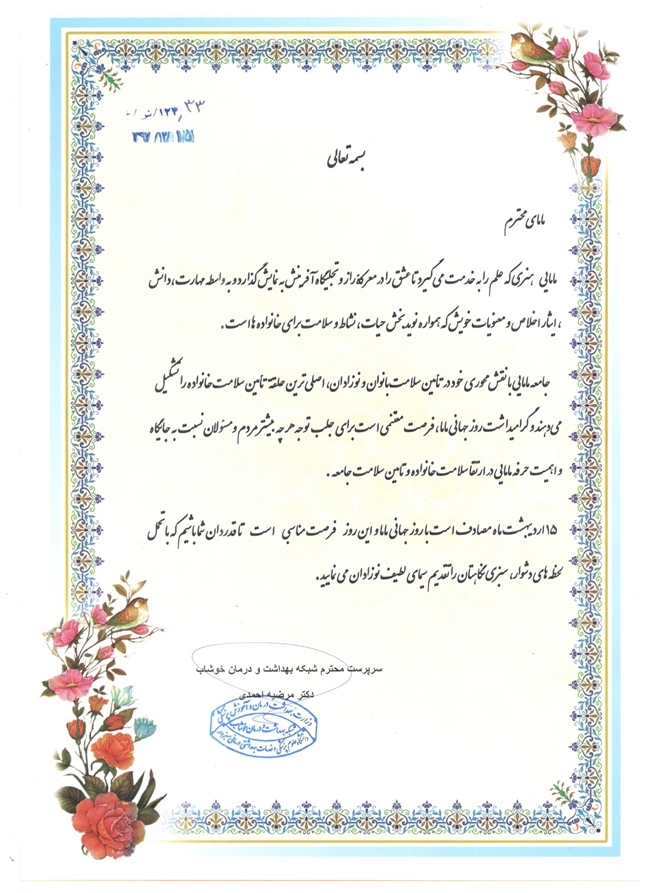 ۱۲۴٫۳۳/ش
بسمه تعالی
مامای محترم
مامایی هنری که علم را به خدمت می گیرد تا عشق را در معرکه راز و تجلیگاه آفرینش به نمایش گذارد و به واسطه مهارت، دانش
، ایثار اخلاص و معنویات خویش که همواره نوید بخش حیات، نشاط و سلامت برای خانواده ها است .
جامعه مامایی با نقش محوری خود در تامین سلامت بانوان و نوزادان، اصلی ترین حلقه تامین سلامت خانواده را تشکیل
می دهند و گرامیداشت روز جهانی ماما، فرصت مغتنمی است برای جلب توجه هر چه بیشتر مردم و مسئولان نسبت به جایگاه
و اهمیت حرفه مامایی در ارتقا سلامت خانواده و تامین سلامت جامعه .
۱۵ اردیبهشت ماه مصادف است با روز جهانی ماما و این روز فرصت مناسبی است تا قدردان شما باشیم که با تحمل
لحظه های دشوار، سبزی نگاهتان را تقدیم سیمای لطیف نوزادان می نمایید.
سرپرست محترم شبکه بهداشت و درمان خوشاب
دکتر مرضیه احمدی
وزارت بهداشت درمان و آموزش پزشکی
شبکه بهداشت و درمان خوشاب
دانشگاه علوم پزشکی و خدمات بهداشتی درمانی سبزوار